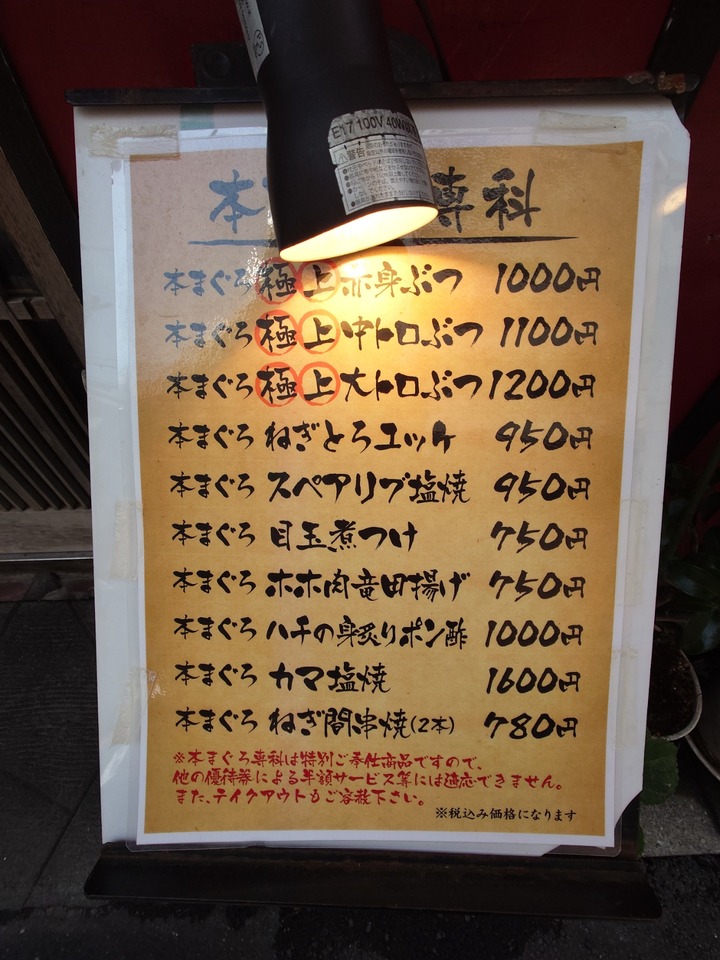 E17 100V 40W
警告
本 専科
本まぐろ 極上赤身ぶつ 1000円
本まぐろ 極上中トロぶつ 1100円
本まぐろ 極上大トロぶつ 1200円
本まぐろ ねぎとろユッケ 950円
本まぐろ スペアリブ塩焼 950円
本まぐろ 目玉煮つけ 750円
本まぐろ ホホ肉竜田揚げ 750円
本まぐろ ハチの身炙りポン酢 1000円
本まぐろ カマ塩焼 1600円
本まぐろ ねぎ間串焼(2本) 780円
※本まぐろ専科は特別ご奉仕商品ですので、
他の優待券による年額サービス等には適応できません。
また、テイクアウトもご容赦下さい。
※税込み価格になります